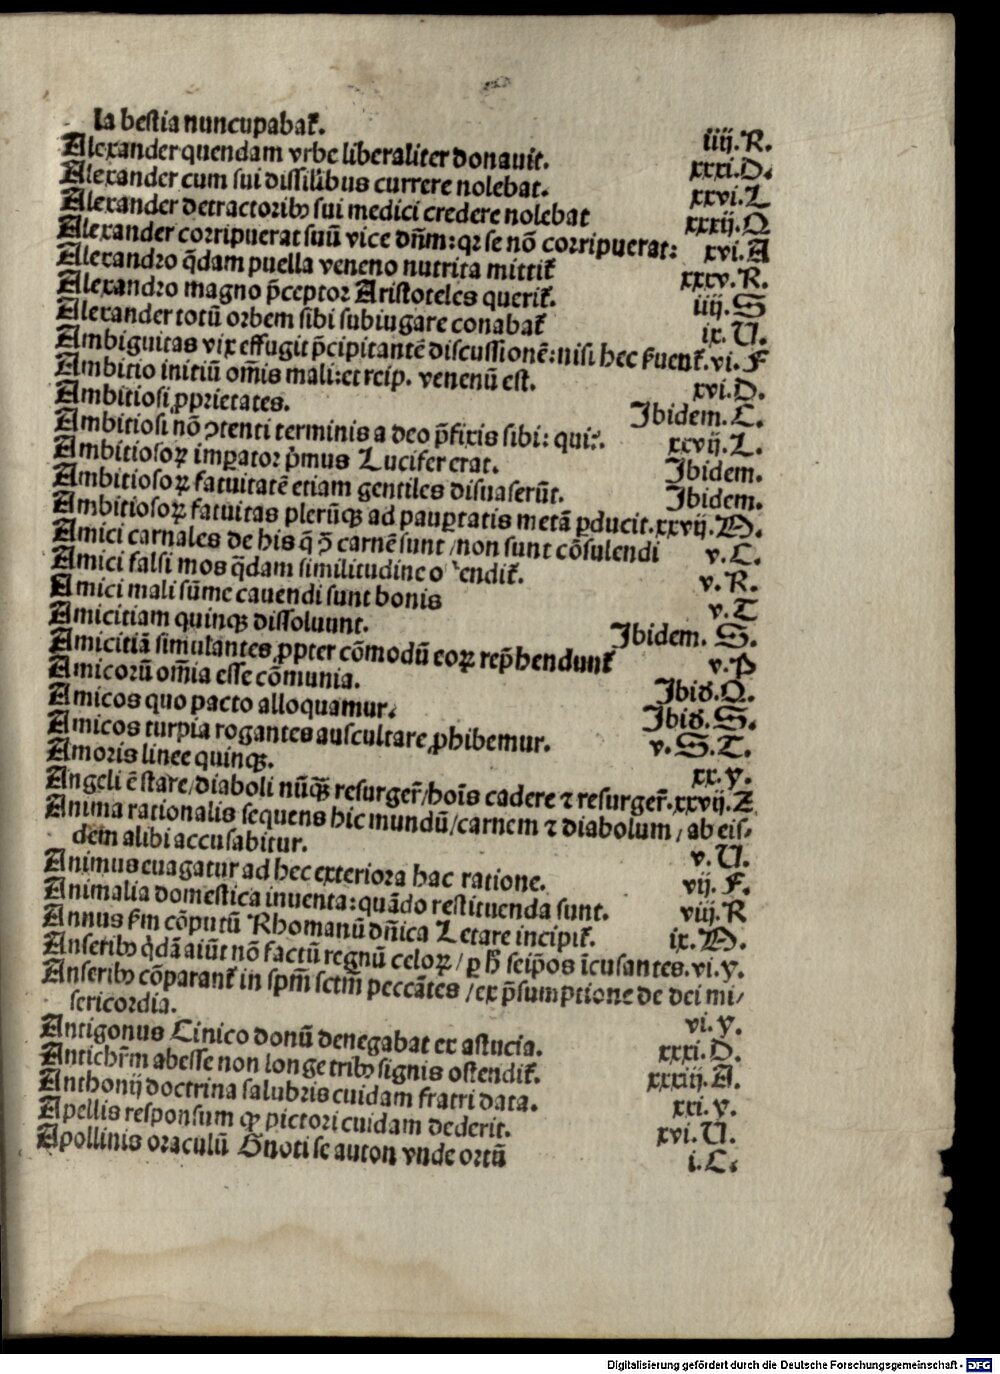 la bestia nuncupabat̃. iiij.R.
Alexander quendam vrbe liberaliter donauit. xxxi.D.
Alexander cum sui dissilibus currere nolebat. xxvi.L
Alexander detractoribꝰ sui medici credere nolebat xxxij.Q
Alexander corripuerat suū vice dn̄m: qꝛ se nō corripuerat: xvi.A
Alexandro q̄dam puella veneno nutrita mittit̃ xxxv.R.
Alexandro magno p̄ceptor Aristoteles querit̃. iiij.S
Alexander totū orbem sibi subiugare conabat̃ ix.U.
Ambiguitas vix effugit p̄cipitantē discussionē: nisi hec fuent̃. vi.F
Ambitio initiū om̄is mali: et reip. venenū est. xvi.D.
Ambitiosi ꝓprietates. Ibidem.C.
Ambitiosi nō ↄtenti terminis a deo p̄fixis sibi: qui:. xxvij.L.
Ambitiosoꝝ imꝑator p̄mus Lucifer erat. Ibidem.
Ambitiosoꝝ fatuitatē etiam gentiles disuaserūt. Ibidem.
Ambitiosoꝝ fatuitas plerūqꝫ ad pauꝑtatis metā ꝑducit. xxvij.M.
Amici carnales de his q̄ ↄ̄ carnē sunt / non sunt cōsulendi v.C.
Amici falsi mos q̄dam similitudine o endit̃. v.R.
Amici mali sūme cauendi sunt bonis v.T
Amicitiam quinqꝫ dissoluunt. Ibidem. S.
Amicitiā simulantes ꝓpter cōmodū eoꝝ rep̄hendunt̃ v.P
Amicorū om̄ia esse cōmunia. Ibiđ.Q.
Amicos quo pacto alloquamur. Ibiđ.S.
Amicos turpia rogantes auscultare ꝓhibemur. v.S.T.
Amoris linee quinqꝫ. xx.y.
Angeli ē stare / diaboli nūqꝫ resurger̄ / hoīs cadere ⁊ resurger̄. xxvij.Z
Anima rationalis sequens hic mundū / carnem ⁊ diabolum / ab eis⸗
dem alibi accusabitur. v.U.
Animus euagatur ad hec exteriora hac ratione. vij.F.
Animalia domestica inuenta: quādo restituenda sunt. viij.R
Annus s̄m cōputū Rhomanū dn̄ica Letare incipit̃. ix.M.
Anseribꝰ q̇dā aiūt nō factū regnū celoꝝ / ꝑ h̄ seip̄os īcusantes. vi.y.
Anseribꝰ cōparant̃ in sp̄m sctm̄ peccātes / ex p̄sumptione de dei mi⸗
sericordia. vi.y.
Antigonus Cinico donū denegabat ex astucia. xxxi.D.
Antichr̄m abesse non longe tribꝰ signis ostendit̃. xxxiij.A.
Anthonij doctrina salubris cuidam fratri data. xxi.y.
Apellis responsum qꝫ pictori cuidam dederit. xvi.U.
Apollinis oraculū Gnoti se auton vnde ortū i.C.
Digitalisierung gefördert durch die Deutsche Forschungsgemeinschaft - DFG